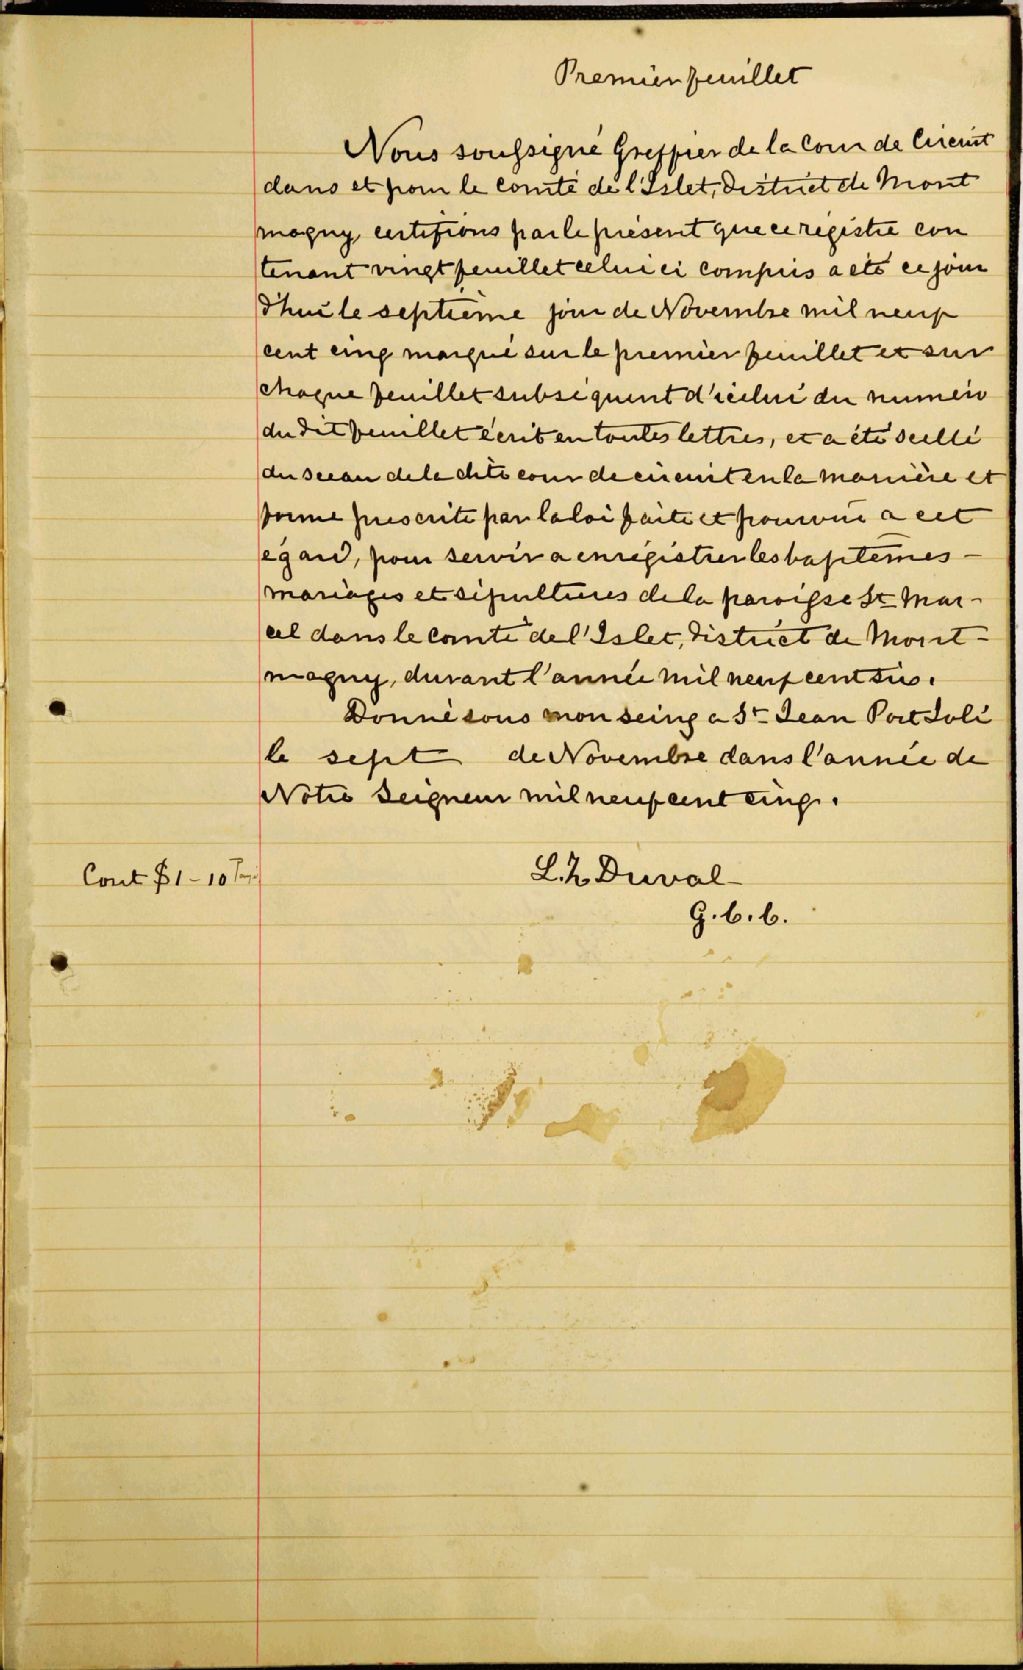 Premier feuillet
Nous soussigné Greffier de la Cour de Circuit
dans et pour le comté de l'Islet, District de Mont
magny, certifions par le présent que ce régistre con
tenant vingt feuillet celui ci compris a été ce jour
d'hui le septième jour de Novembre mil neuf
cent cinq marqué sur le premier feuillet et sur
chaque feuillet subséquent d'icelui du numéro
du dit feuillet écrit en toutes lettres, et a été scellé
du sceau de la dite cour de circuit en la manière et
forme prescrite par la loi faite et pourvue a cet
égard, pour servir a enrégistrer les baptêmes -
mariages et sépultures de la paroisse St Mar-
cel dans le comté de l'Islet, District de Mont-
magny, durant l'année mil neuf cent six.
Donné sous mon seing a St Jean Port Joli
le sept de Novembre dans l'année de
Notre Seigneur mil neuf cent cinq.
Cout $1-10
L.Z. Duval
G.C.C.